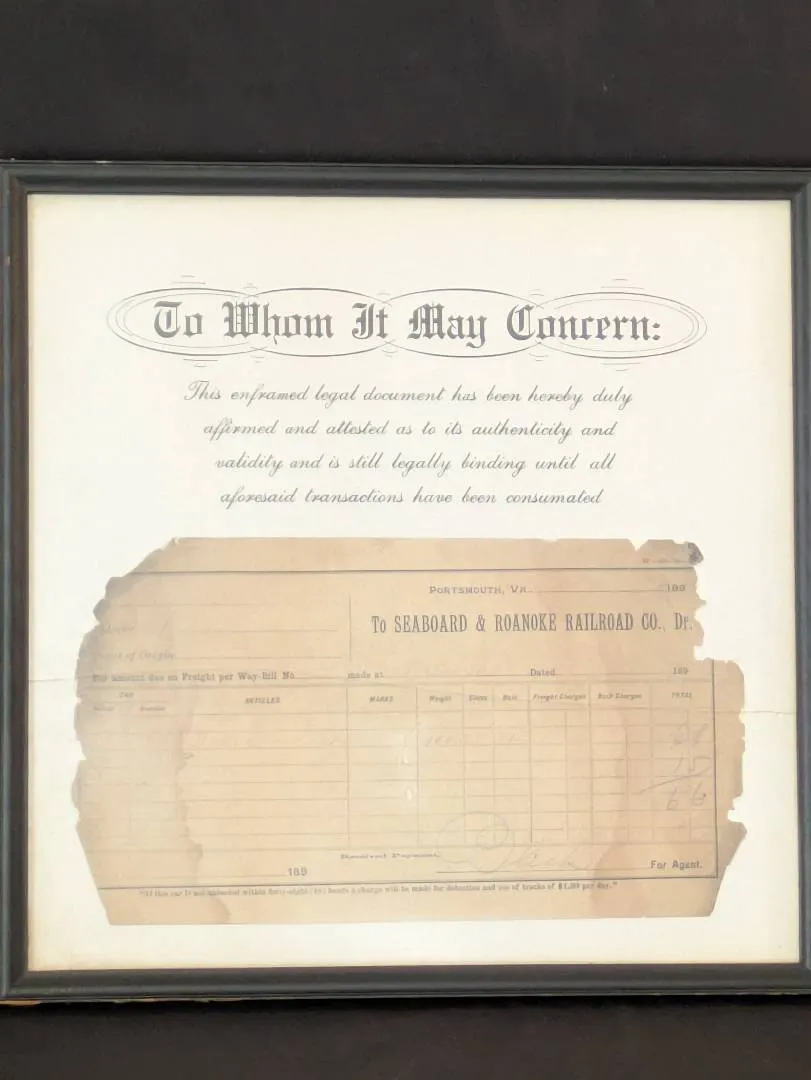 To Whom It May Concern:
This enframed legal document has been hereby duly
affirmed and attested as to its authenticity and
validity and is still legally binding until all
aforesaid transactions have been consumated
PORTSMOUTH, VA. 189
To SEABOARD & ROANOKE RAILROAD CO., Dr.
of Origin
For amount due on Freight per Way-Bill No. made at Dated 189
CAR ARTICLES MARKS Weight Class Rate Freight Charges Back Charges TOTAL
Number
15
66
Received Payment,
189 For Agent.
"If this car is not unloaded within forty-eight (48) hours a charge will be made for detention and use of tracks of $1.00 per day."